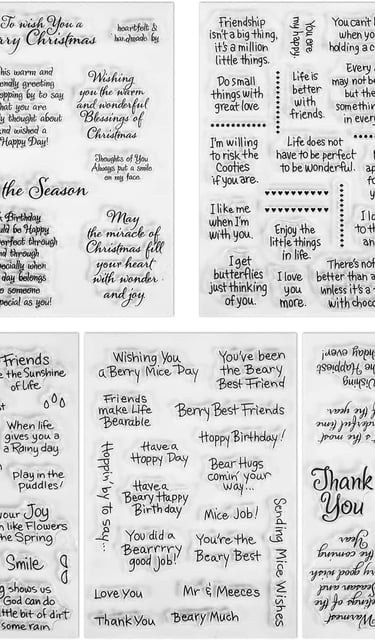 To wish You a
rry Christmas
heartfelt &
handmade by
his warm and
endly greeting
opping by to say
hat you are
ly thought about
nd wished a
Happy Day!
Wishing
you the warm
and wonderful
Blessings of
Christmas
Thoughts of You
Always put a smile
on my face
the Season
Birthday
uld be Happy
erfect through
nd through
pecially when
day belongs
o someone
pecial as you!
May
the miracle of
Christmas fill
your heart
with wonder
and joy.
Friendship
isn't a big thing,
it's a million
little things.
You are
my happy.
You can't
when yo
holding a c
Do small
things with
great love
Life is
better
with
friends.
Every
may not be
but the
somethin
in ever
I'm willing
to risk the
Cooties
if you are.
Life does not
have to be perfect
to be wonderful.
I like me
when I'm
with you.
Enjoy the
little things
in life.
I get
butterflies
just thinking
of you.
I love
you
more.
There's not
better than a
unless it's a
with choco
Friends
e the Sunshine
of Life
When life
gives you a
Rainy day
play in the
puddles!
your Joy
n like Flowers
the Spring
Smile
g shows us
God can do
ttle bit of dirt
some rain
Wishing You
a Berry Mice Day
You've been
the Beary
Best Friend
Friends
make Life
Bearable
Berry Best Friends
Happy Birthday!
Hoppin' by to say...
Have a
Hoppy Day
Bear Hugs
comin' your
way...
Have a
Beary Happy
Birthday
Mice Job!
Sending Mice Wishes
You did a
Bearrrry
good job!
You're the
Beary Best
Love You
Mr & Meeces
Thank You
Beary Much
Wishing
the Happiest
Birthday ever!
t's the most
wonderful time
of the year
Thank
You
Warmest
dings of the
eason and
ry good wish
the coming
Year